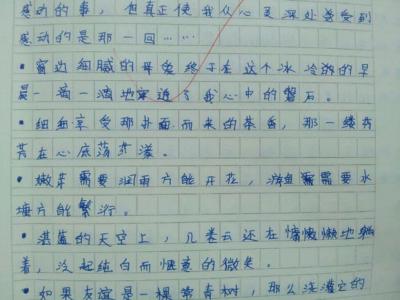 感动的事，但真正使我从心灵深处感受到
感动的是那一回……
·窗边细腻的母爱终于在这个冰冷的早
晨一滴一滴地穿透了我心中的磐石。
·细细享受那扑面而来的茶香，那一缕芬
芳在心底荡荡漾。
·嫩芽需要润雨方能开花，游鱼需要水
塘方能繁衍。
·湛蓝的天空上，几卷云还在慵懒懒地躺
着，泛起纯白而惬意的微笑。
·如果友谊是一棵常青树，那么浇灌它的